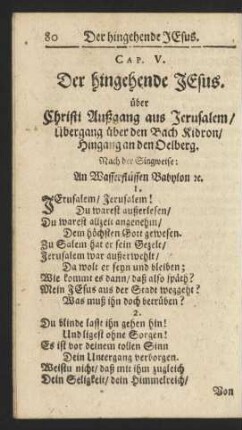 80 Der hingehende JEsus.
CAP. V.
Der hingehende JEsus.
über
Christi Außgang aus Jerusalem/
Übergang über den Bach Kidron/
Hingang an den Oelberg.
Nach der Singweise:
An Wasserflüssen Babylon ꝛc.
1.
JErusalem/ Jerusalem!
Du warest außerlesen/
Du warest allzeit angenehm/
Dem höchsten Gott gewesen.
Zu Salem hat er sein Gezelt/
Jerusalem war außerwehlt/
Da wolt er seyn und bleiben;
Wie kommt es dann/ daß also späth?
Mein JEsus aus der Stadt weggeht?
Was muß ihn doch vertrüben?
2.
Du blinde lasst ihn gehen hin!
Und ligest ohne Sorgen!
Es ist vor deinem tollen Sinn
Dein Untergang verborgen.
Weistu nicht/ daß mit ihm zugleich
Dein Seligkeit/ dein Himmelreich/
Von